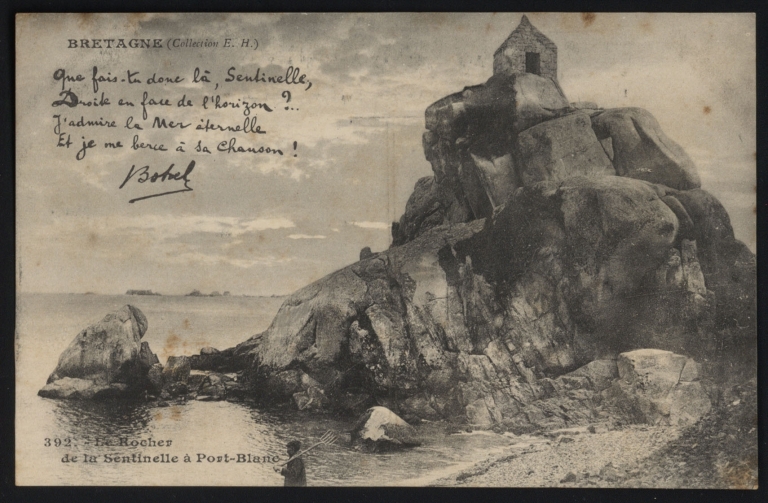 BRETAGNE (Collection E. H.)
Que fais-tu donc là, Sentinelle,
Droite en face de l'horizon ?..
J'admire la Mer éternelle
Et je me berce à sa Chanson !
Botrel
392. - Le Rocher
de la Sentinelle à Port-Blanc